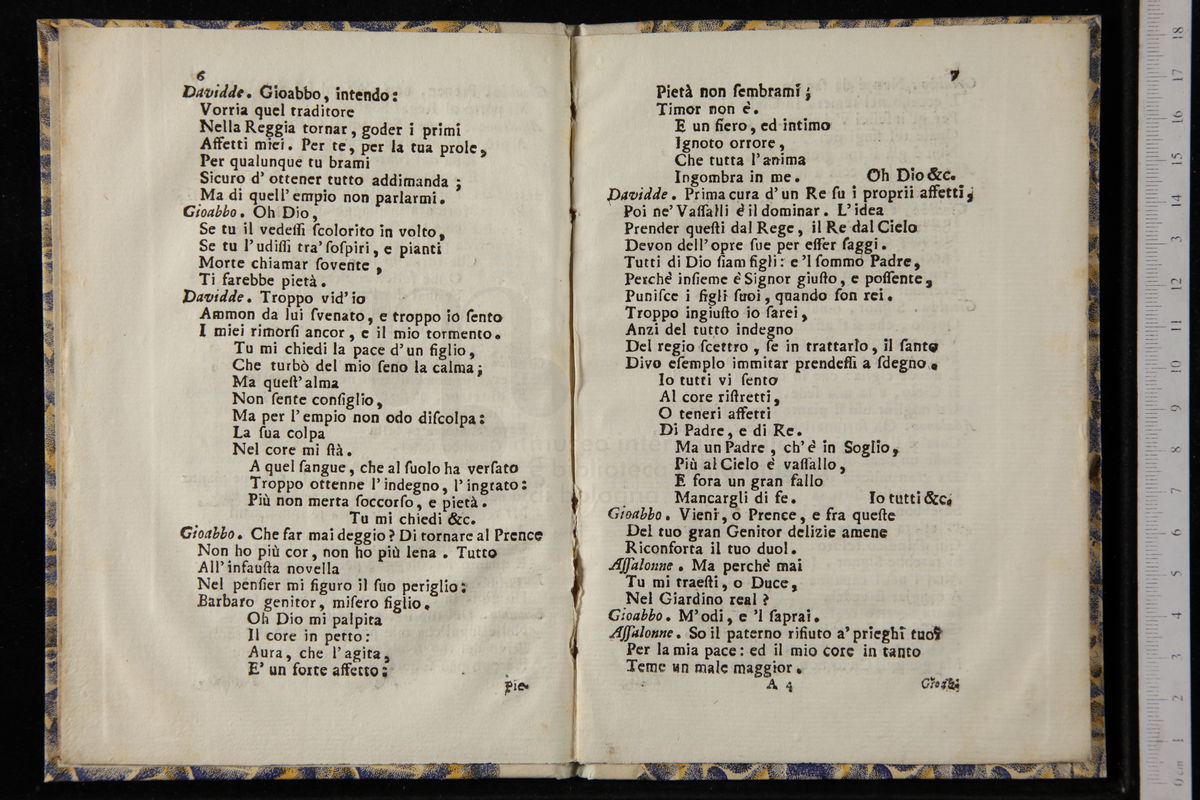 6
Davidde. Gioabbo, intendo:
Vorria quel traditore
Nella Reggia tornar, goder i primi
Affetti miei. Per te, per la tua prole,
Per qualunque tu brami
Sicuro d' ottener tutto addimanda;
Ma di quell' empio non parlarmi.
Gioabbo. Oh Dio,
Se tu il vedeſſi ſcolorito in volto,
Se tu l' udiſſi tra' ſoſpiri, e pianti
Morte chiamar ſovente,
Ti farebbe pietà.
Davidde. Troppo vid' io
Ammon da lui ſvenato, e troppo io ſento
I miei rimorſi ancor, e il mio tormento.
Tu mi chiedi la pace d' un figlio,
Che turbò del mio ſeno la calma;
Ma queſt' alma
Non ſente conſiglio,
Ma per l' empio non odo diſcolpa:
La ſua colpa
Nel core mi ſtà.
A quel ſangue, che al ſuolo ha verſato
Troppo ottenne l' indegno, l' ingrato:
Più non merta ſoccorſo, e pietà.
Tu mi chiedi &c.
Gioabbo. Che far mai deggio? Di tornare al Prence
Non ho più cor, non ho più lena. Tutto
All' infauſta novella
Nel penſier mi figuro il ſuo periglio:
Barbaro genitor, miſero figlio.
Oh Dio mi palpita
Il core in petto:
Aura, che l' agita,
E' un forte affetto:
Pie-
7
Pietà non ſembrami;
Timor non è.
E un fiero, ed intimo
Ignoto orrore,
Che tutta l' anima
Ingombra in me. Oh Dio &c.
Davidde. Prima cura d' un Re ſu i proprii affetti,
Poi ne' Vaſſalli è il dominar. L' idea
Prender queſti dal Rege, il Re dal Cielo
Devon dell' opre ſue per eſſer ſaggi.
Tutti di Dio ſiam figli: e 'l ſommo Padre,
Perchè inſieme è Signor giuſto, e poſſente,
Puniſce i figli ſuoi, quando ſon rei.
Troppo ingiuſto io ſarei,
Anzi del tutto indegno
Del regio ſcettro, ſe in trattarlo, il ſanto
Divo eſemplo immitar prendeſſi a ſdegno.
Io tutti vi ſento
Al core riſtretti,
O teneri affetti
Di Padre, e di Re.
Ma un Padre, ch' è in Soglio,
Più al Cielo è vaſſallo,
E fora un gran fallo
Mancargli di fe. Io tutti &c.
Gioabbo. Vieni, o Prence, e fra queſte
Del tuo gran Genitor delizie amene
Riconforta il tuo duol.
Aſſalonne. Ma perchè mai
Tu mi traeſti, o Duce,
Nel Giardino real?
Gioabbo. M' odi, e 'l ſaprai.
Aſſalonne. So il paterno rifiuto a' prieghi tuoi
Per la mia pace: ed il mio core in tanto
Teme un male maggior.
A 4